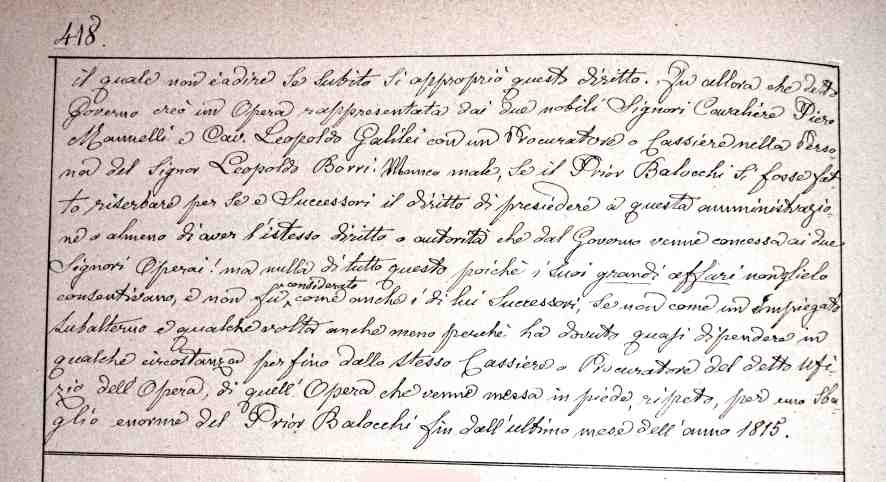 418.
il quale non è a dire se subito si appropriò questo diritto. Fu allora che detto
Governo creò un Opera rappresentata dai due nobili Signori Cavaliere Piero
Mannelli e Cav. Leopoldo Galilei con un Procuratore o Cassiere nella Perso
na del Signor Leopoldo Borri. Manco male, se il Prior Balocchi si fosse fat
to riserbare per se e Successori il diritto di presiedere a questa amministrazio
ne o almeno di aver l'istesso diritto o autorità che dal Governo venne concessa ai due
Signori Operai! ma nulla di tutto questo poichè i suoi grandi affari non glielo
consentivano, e non fù considerato come anche i di lui Successori, se non come un impiegato
subalterno e qualche volta anche meno perchè ha dovuto quasi dipendere in
qualche circostanza perfino dallo stesso Cassiere o Procuratore del detto Ufi
zio dell'Opera, di quell'Opera che venne messa in piede, ripeto, per uno Sba
glio enorme del Prior Balocchi fin dall'ultimo mese dell'anno 1815.